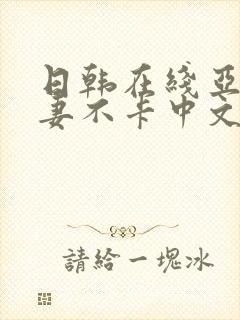 日韩在綫亞
妻不卡中文
請給一塊冰